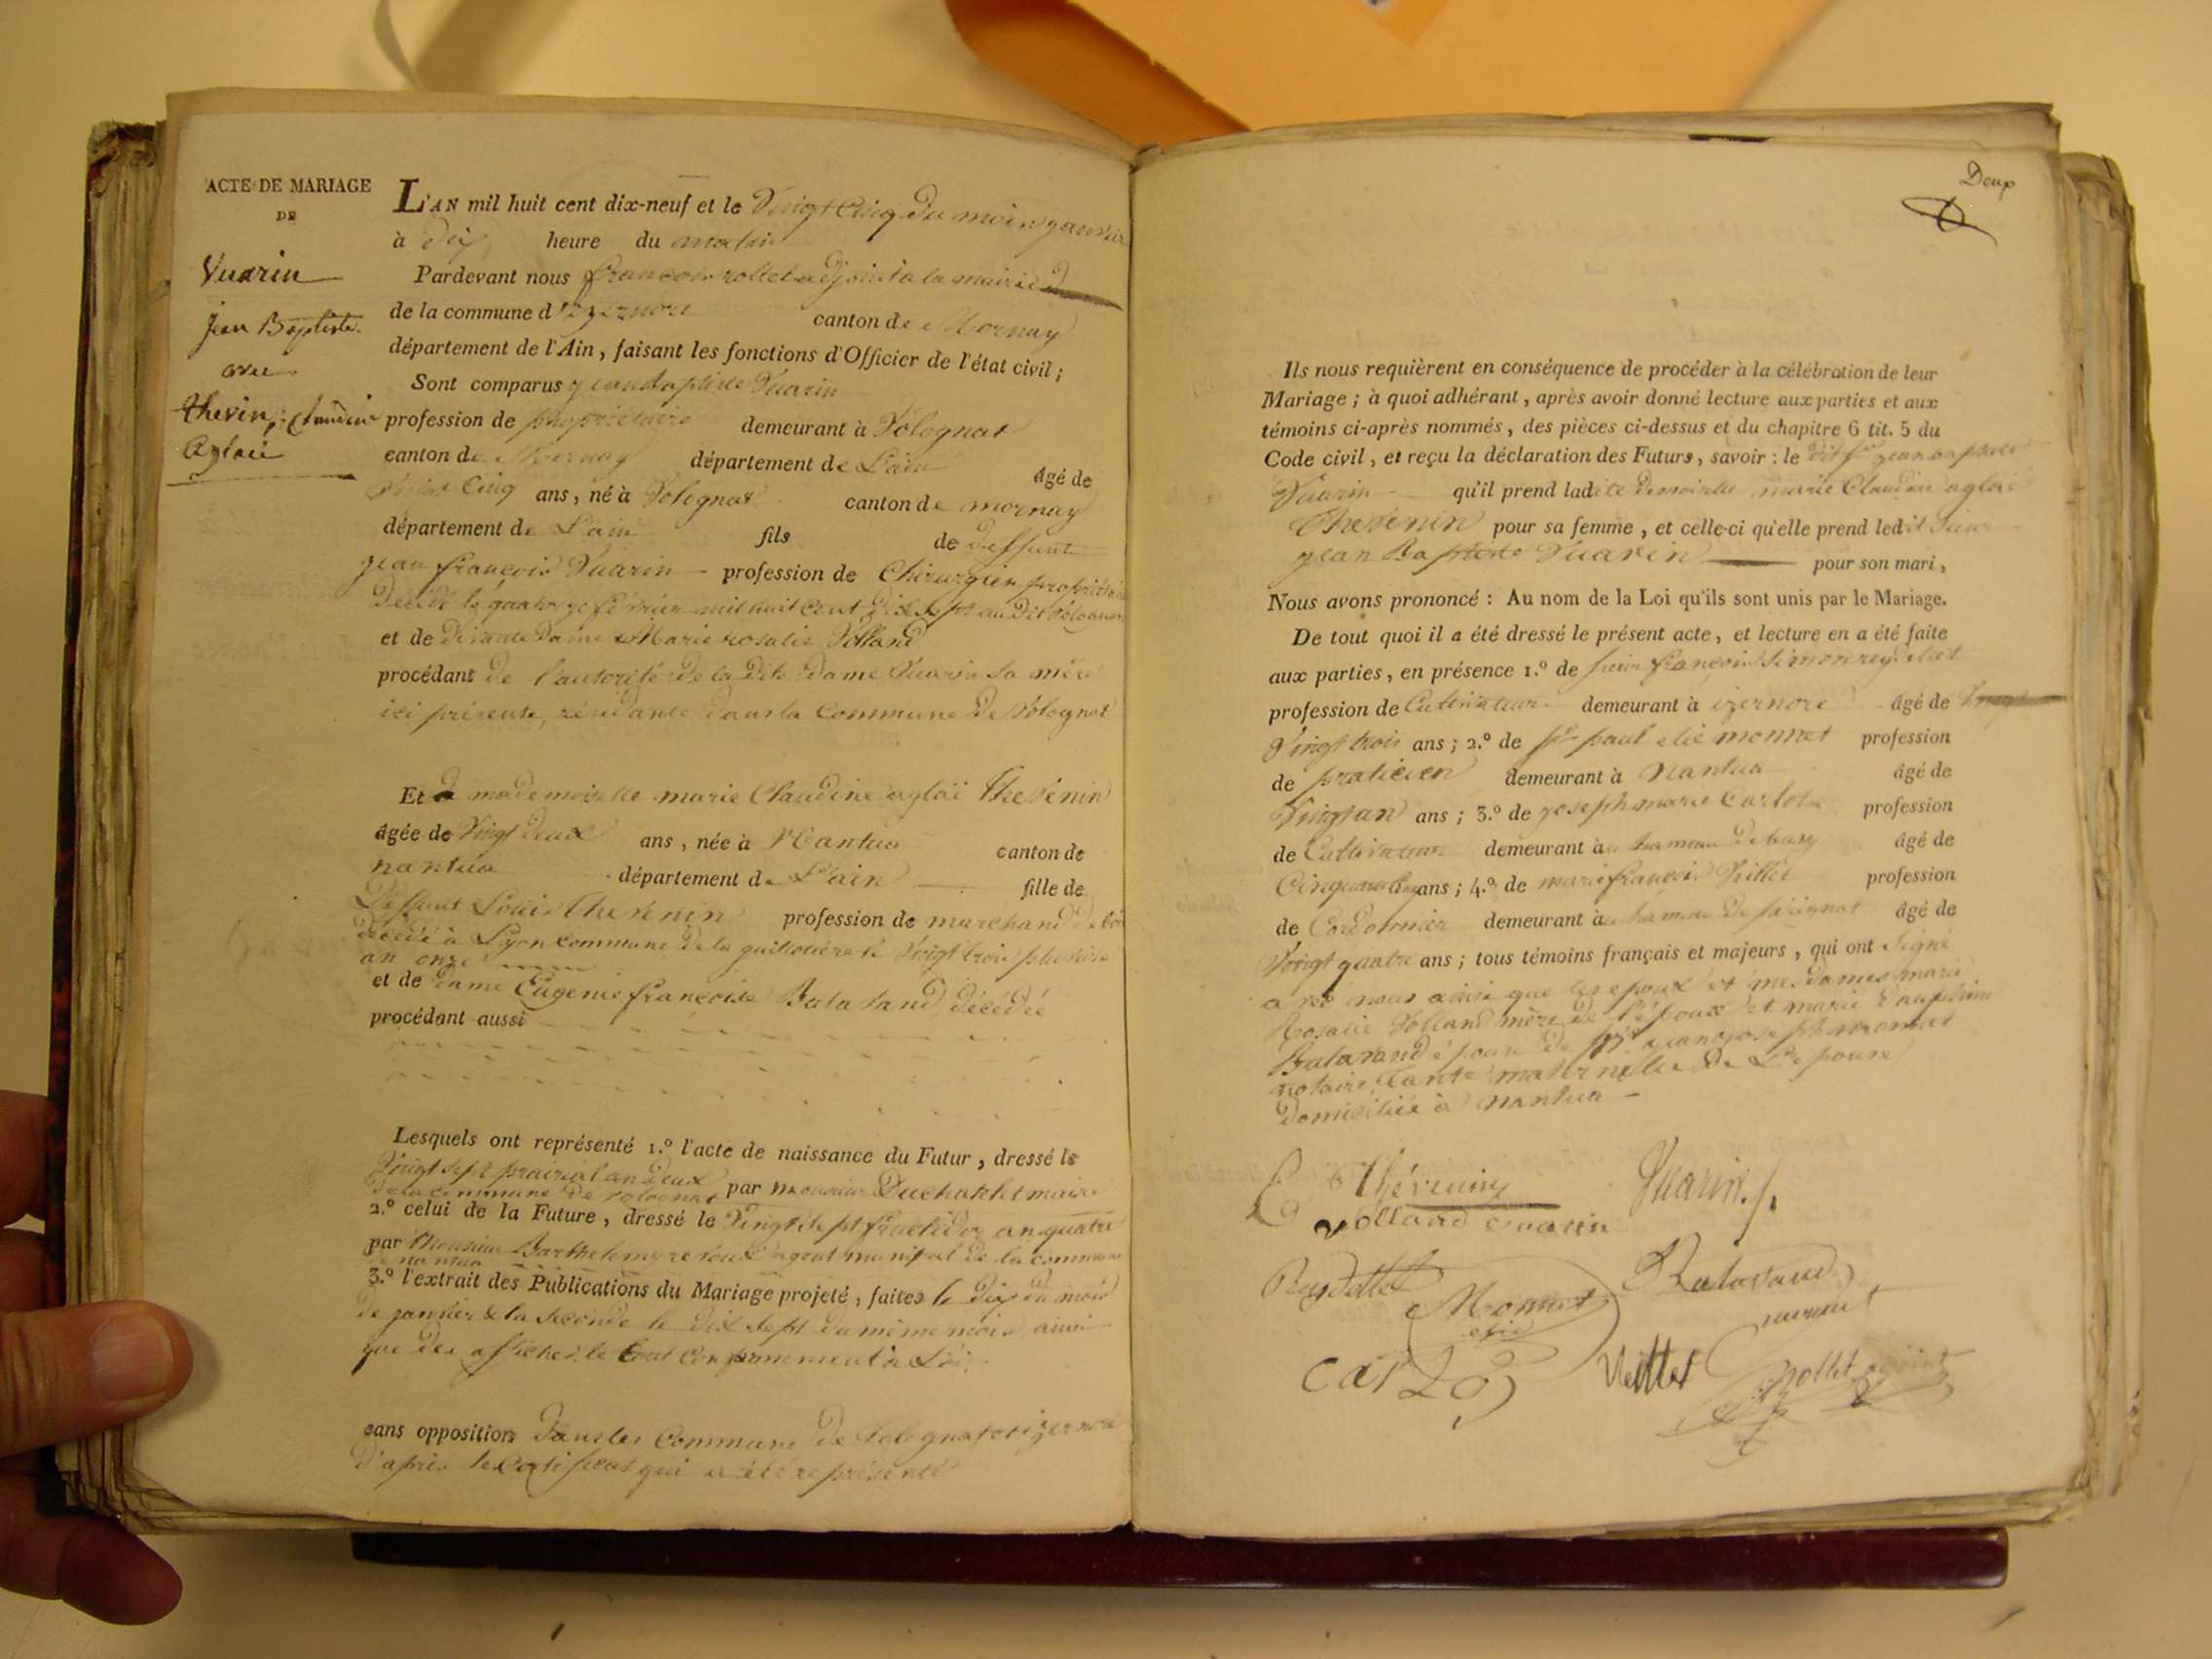 ACTE DE MARIAGE
DE
Vuarin
Jean Baptiste
avec
thevin, Claudine
Aglaé
L'AN mil huit cent dix-neuf et le Vingt Cinq du mois janvier
à dix heure du matin
Pardevant nous françois rollet adjoint a la mairie
de la commune d'izernore canton de Mornay
département de l'Ain, faisant les fonctions d'Officier de l'état civil;
Sont comparus jean baptiste Vuarin
profession de propriétaire demeurant à Volognat
canton de Mornay département de L'ain âgé de
Vingt Cinq ans, né à Volognat canton de mornay
département de L'ain fils de deffunt
jean françois Vuarin profession de Chirurgien propriétaire
décédé le quatorze février mil huit cent dix sept au dit Volognat
et de vivante dame Marie rosalie Volland
procédant de l'autorité de la dite dame Vuarin sa mère
ici présente, résidante dans la Commune de Volognat
Et mademoiselle marie Claudine aglaï Thevenin
âgée de Vingt deux ans, née à Nantua canton de
nantua département de L'ain fille de
Deffunt Louis Thevenin profession de marchand de
décédé à Lyon commune de la guillotière le Vingt trois pluviose
an onze
et de dame Eugenie françoise Balavand, décédée
procédant aussi
Lesquels ont représenté 1.º l'acte de naissance du Futur, dressé le
Vingt sept prairial an deux
de la commune de volognat par monsieur Duchatelet maire
2.º celui de la Future, dressé le Vingt sept fructidor an quatre
par Monsieur Barthelemy reroux agent municipal de la commune
de nantua
3.º l'extrait des Publications du Mariage projeté, faites le dix du mois
de janvier & la seconde le dix sept du même mois ainsi
que des affiches le tout conformement à Loi
sans opposition dans les Commune de Volognat et izernore
d'après le Certificat qui a été représenté
Deux
Ils nous requièrent en conséquence de procéder à la célébration de leur
Mariage; à quoi adhérant, après avoir donné lecture aux parties et aux
témoins ci-après nommés, des pièces ci-dessus et du chapitre 6 tit. 5 du
Code civil, et reçu la déclaration des Futurs, savoir: le dit sr jean baptiste
Vuarin qu'il prend ladite demoiselle marie Claudine aglaé
Thevenin pour sa femme, et celle-ci qu'elle prend ledit sieur
jean Baptiste Vuarin pour son mari,
Nous avons prononcé: Au nom de la Loi qu'ils sont unis par le Mariage.
De tout quoi il a été dressé le présent acte, et lecture en a été faite
aux parties, en présence 1.º de sieur françois Simon reydellet
profession de Cultivateur demeurant à izernore âgé de
Vingt trois ans; 2.º de sr paul elie monnet profession
de praticien demeurant à nantua âgé de
Vingt un ans; 3.º de joseph marie Carlot profession
de Cultivateur demeurant au hameau de âgé de
ans; 4.º de marie françois Veillet profession
de Cordonnier demeurant à hameau de perignat âgé de
Vingt quatre ans; tous témoins français et majeurs, qui ont signé
avec nous ainsi que les epoux et mesdames marie
Rosalie Volland mère de l'époux et marie Dauphine
Balavand épouse de sr jean joseph monnet
notaire, tante maternelle de L'epouse
domiciliée à nantua
Thévenin Vuarin
vollaod vuarin
Reydellet Monnet Balavaud
elie monnet
carlo Veillet Rollet adjoint